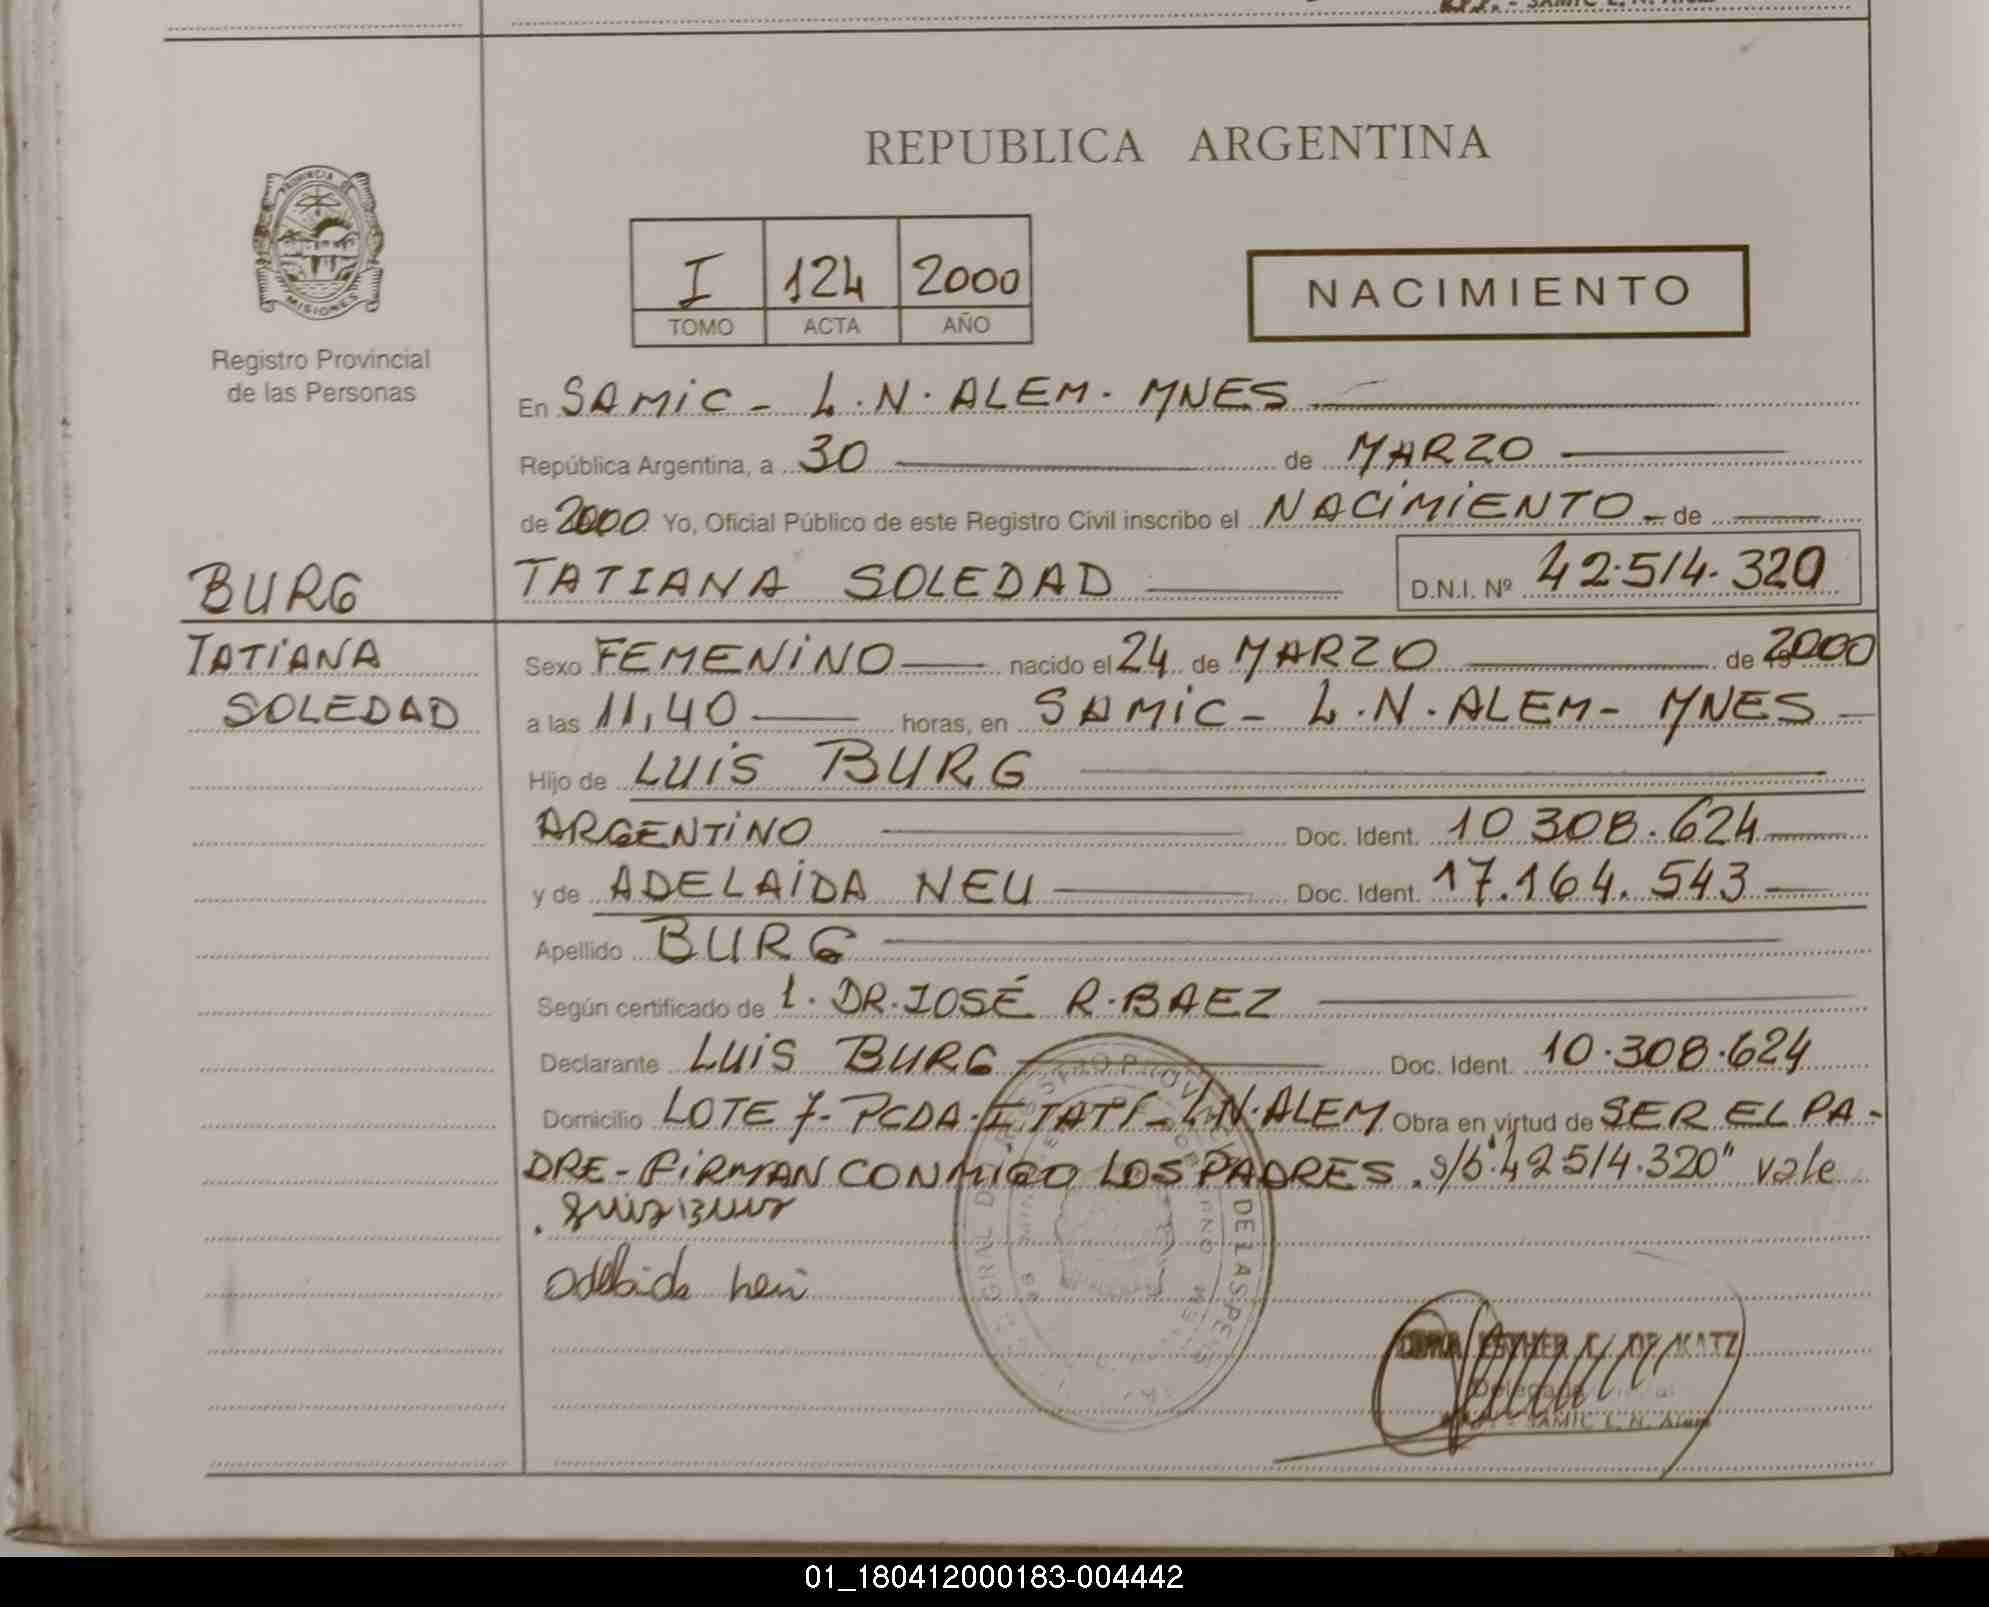 REPUBLICA ARGENTINA
PROVINCIA DE
MISIONES
Registro Provincial
de las Personas
I 124 2000
TOMO ACTA AÑO
NACIMIENTO
En SAMIC - L.N. ALEM. MNES
República Argentina, a 30 de MARZO
de 2000 Yo, Oficial Público de este Registro Civil inscribo el NACIMIENTO - de
BURG
TATIANA SOLEDAD D.N.I. Nº 42.514.320
TATIANA
SOLEDAD
Sexo FEMENINO nacido el 24 de MARZO de 2000
a las 11,40 horas, en SAMIC - L.N. ALEM - MNES
Hijo de LUIS BURG
ARGENTINO Doc. Ident. 10 308.624
y de ADELAIDA NEU Doc. Ident. 17.164.543
Apellido BURG
Según certificado de 1. DR. JOSÉ R. BAEZ
Declarante LUIS BURG Doc. Ident. 10.308.624
Domicilio LOTE 7- PCDA. I TATI - L.N. ALEM Obra en virtud de SER EL PA-
DRE - FIRMAN CONMIGO LOS PADRES. s/b "42514.320" vale
DE LAS PE
ESTHER DE KATZ
Delegada
SAMIC L. N. Alem
01_180412000183-004442